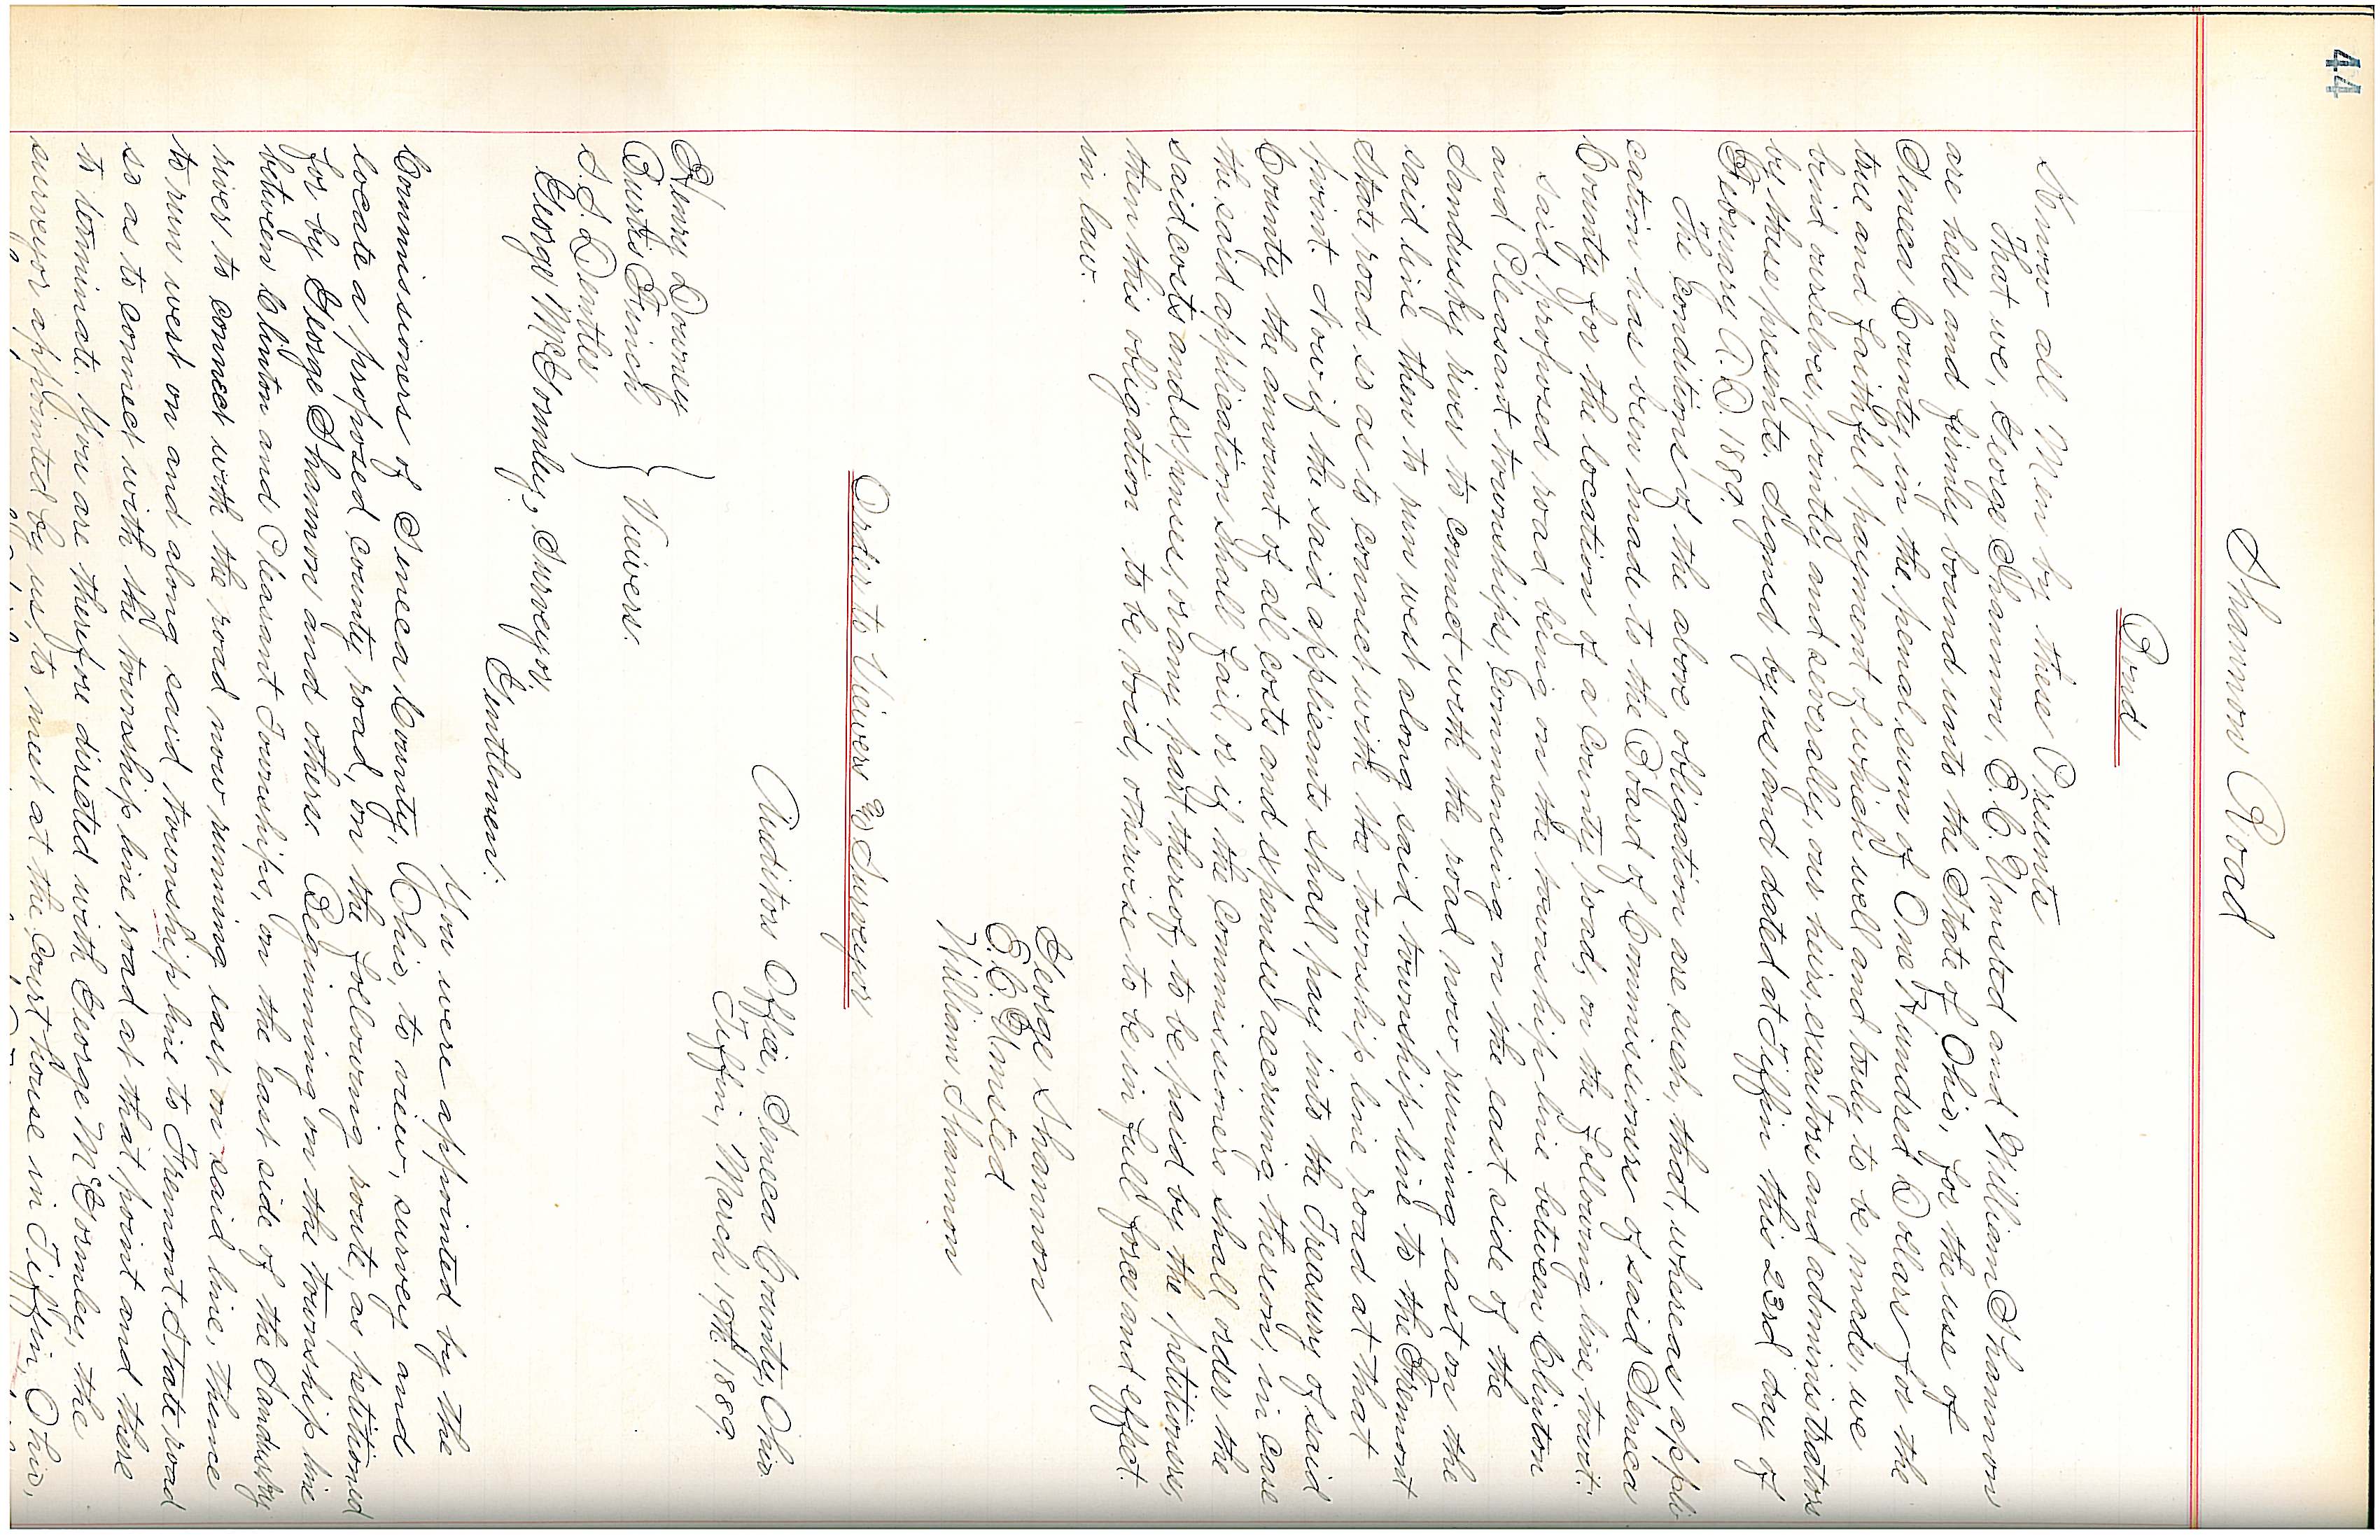 44
Shannon Road
Bond
Know all Men by these Presents
That we, George Shannon, E.C. Umsted and William Shannon
are held and firmly bound unto the State of Ohio, for the use of
Seneca County, in the penal sum of One Hundred Dollars for the
true and faithful payment of which well and truly to be made, we
bind ourselves, jointly and severally, our heirs, executors and administrators
by these presents. Signed by us and dated at Tiffin this 23rd day of
February A.D. 1889.
The Conditions of the above obligation are such, that, whereas appli
cation has been made to the Board of Commissioners of said Seneca
County for the location of a County road, on the following line, towit:
said proposed road being on the township line between Clinton
and Pleasant townships, Commencing on the east side of the
Sandusky river to connect with the road now running east on the
said line then to run west along said township line to the Fremont
State road so as to connect with the township line road at that
point. Now if the said applicants shall pay into the Treasury of said
County the amount of all costs and expenses accruing thereon, in case
the said application shall fail, or if the Commissioners shall order the
said costs and expenses, or any part thereof, to be paid by the petitioners,
then this obligation to be void, otherwise to be in full force and effect
in law.
George Shannon
E.C. Umsted
William Shannon
Order to Viewers & Surveyor
Auditors Office, Seneca County, Ohio
Tiffin, March 19th 1889.
Henry Downey
Curtis Finch
S.S. Dentler
Viewers.
George McGormley, Surveyor,
Gentlemen:
You were appointed by the
Commissioners of Seneca County, Ohio, to view, survey and
locate a proposed county road, on the following route, as petitioned
for by George Shannon and others. Beginning on the township line
between Clinton and Pleasant Townships, on the east side of the Sandusky
river to connect with the road now running east on said line, thence
to run west on and along said township line to Fremont State road
so as to connect with the township line road at that point and there
to terminate. You are therefore directed with George McGormley, the
surveyor appointed by us, to meet at the Court house in Tiffin Ohio,